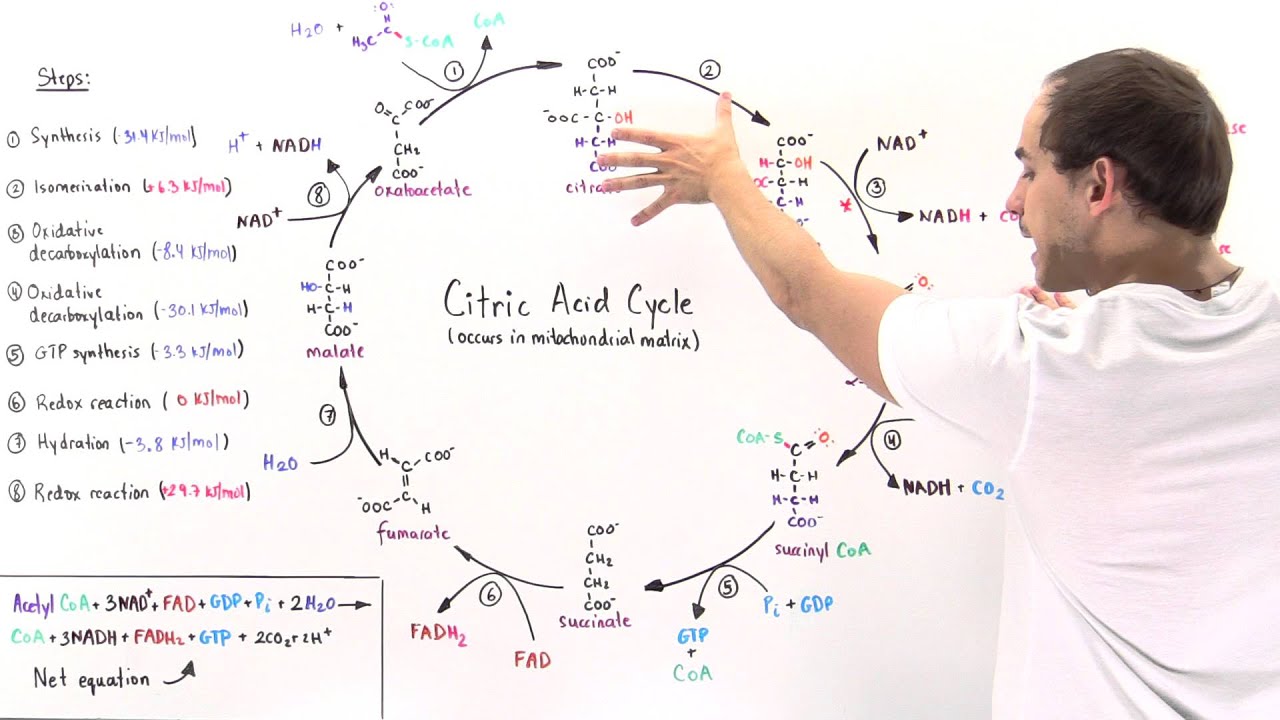 Steps:
① Synthesis (-31.4 KJ/mol)
② Isomerization (+6.3 KJ/mol)
③ Oxidative
decarboxylation (-8.4 KJ/mol)
④ Oxidative
decarboxylation (-30.1 KJ/mol)
⑤ GTP synthesis (-3.3 KJ/mol)
⑥ Redox reaction (0 KJ/mol)
⑦ Hydration (-3.8 KJ/mol)
⑧ Redox reaction (+29.7 KJ/mol)
Acetyl CoA + 3NAD⁺ + FAD + GDP + Pi + 2H₂O →
CoA + 3NADH + FADH₂ + GTP + 2CO₂ + 2H⁺
Net equation
Citric Acid Cycle
(occurs in mitochondrial matrix)
H₂O +
:O:
H
C
H₃C
S-CoA
CoA
①
O
C
COO⁻
CH₂
COO⁻
oxaloacetate
COO⁻
H-C-H
⁻OOC-C-OH
H-C-H
COO
②
COO⁻
H-C-OH
C-H
C-H
NAD⁺
③
NADH +
O
④
NADH + CO₂
CoA-S
C
O
H-C-H
H-C-H
COO⁻
succinyl CoA
⑤
Pi + GDP
GTP
+
CoA
COO⁻
CH₂
CH₂
COO⁻
succinate
⑥
FAD
FADH₂
H
C
COO⁻
⁻OOC
C
H
fumarate
⑦
H₂O
COO⁻
HO-C-H
H-C-H
COO⁻
malate
⑧
NAD⁺
H⁺ + NADH